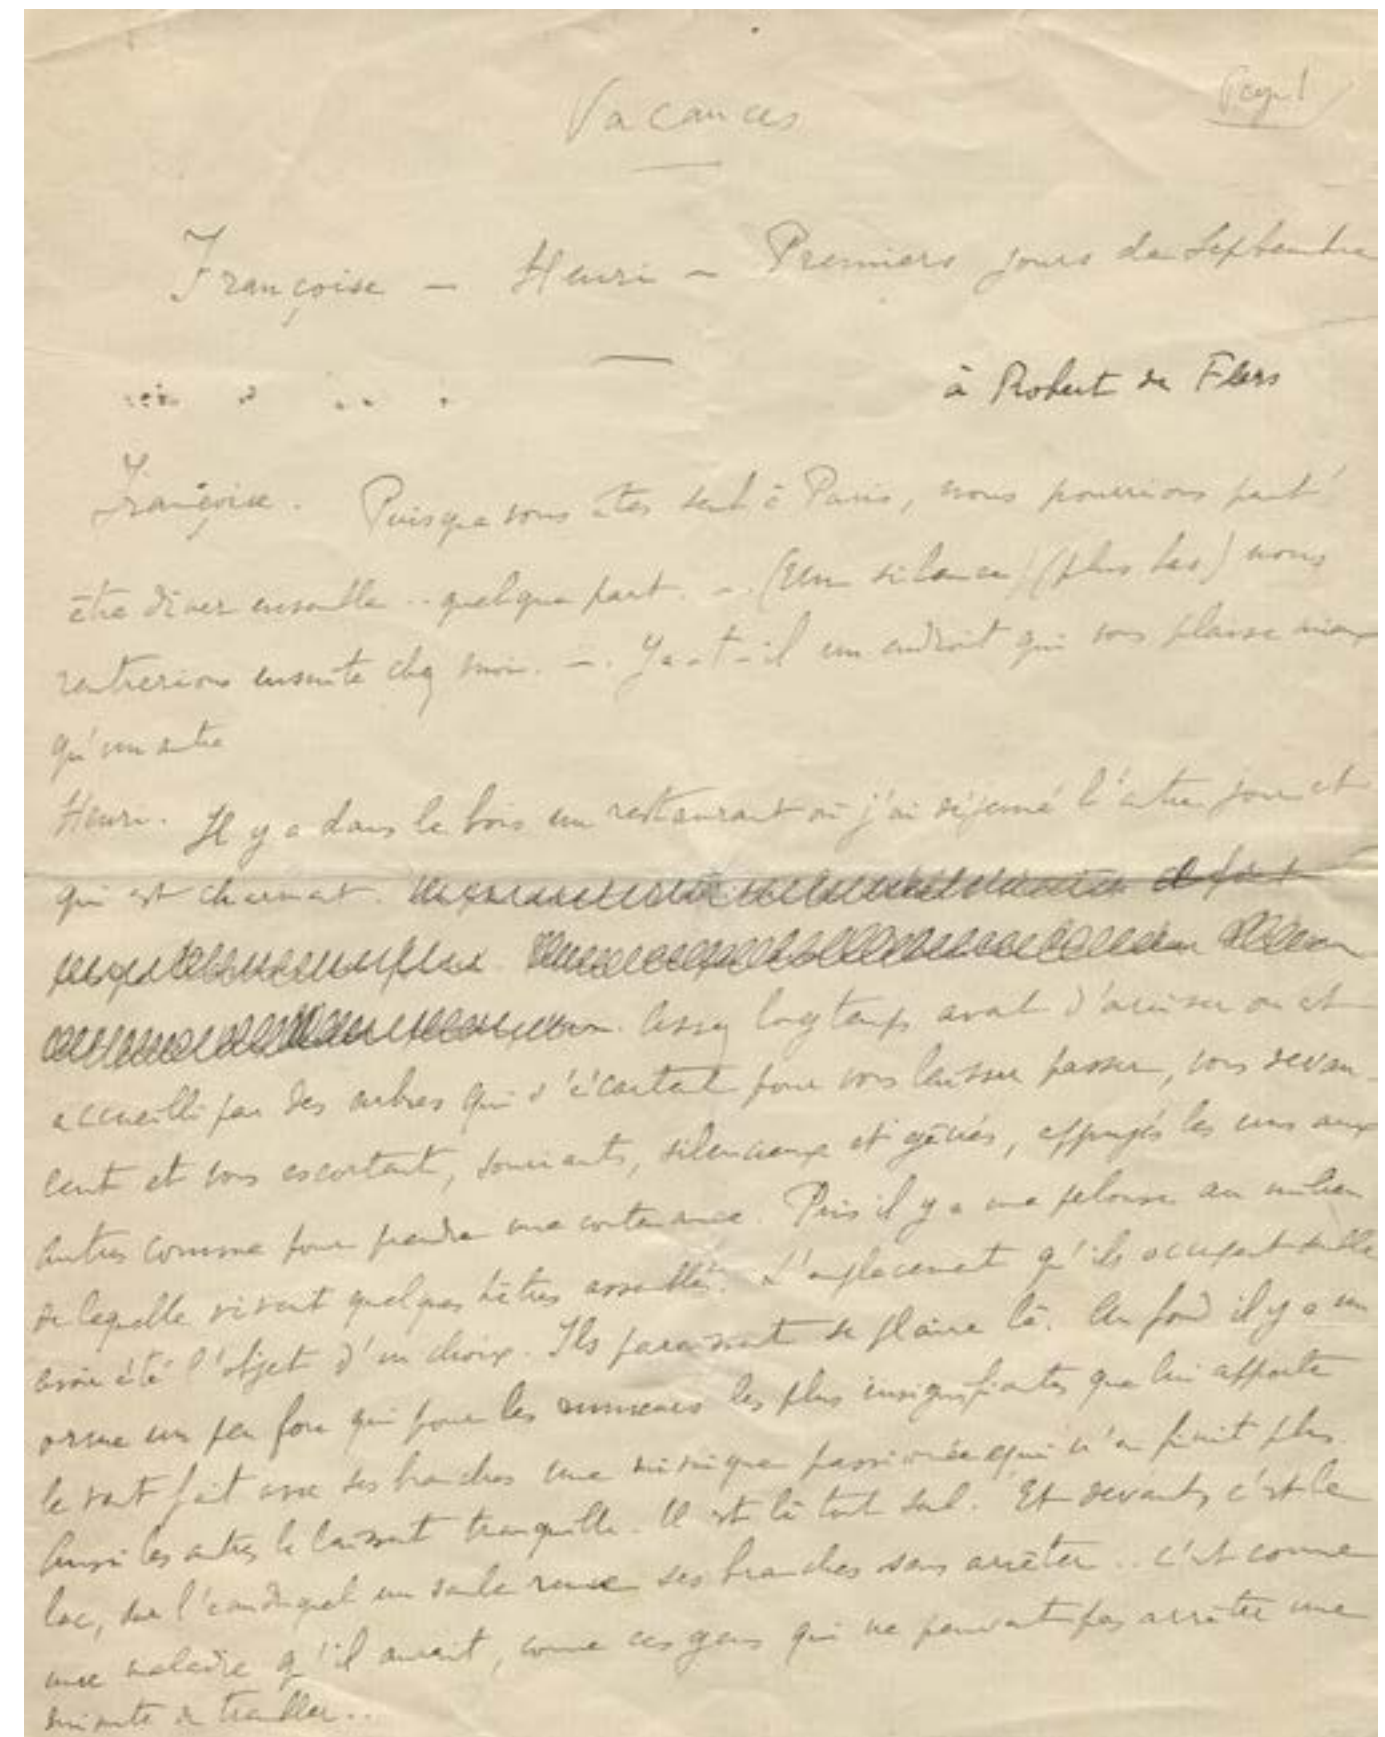 Vacances
Page 1
Françoise – Henri – Premiers jours de Septembre
à Robert de Flers
Françoise. Puisque vous êtes seul à Paris, nous pourrions peut
être dîner ensemble .. quelque part. – . (Un silence) (plus bas) nous
rentrerions ensuite chez moi. – . Y a-t-il un endroit qui vous plaise mieux
qu'un autre
Henri. Il y a dans le bois un restaurant où j'ai déjeuné l'autre jour et
qui est charmant. il fait
assez longtemps avant d'arriver on est
accueilli par des arbres qui s'écartent pour vous laisser passer, vous devan-
cent et vous escortent, souriants, silencieux et gênés, appuyés les uns aux
autres comme pour prendre une contenance. Puis il y a une pelouse au milieu
de laquelle vivent quelques hêtres assemblés. L'emplacement qu'ils occupent semble
avoir été l'objet d'un choix. Ils paraissent se plaire là. Au fond il y a un
orme un peu fou qui pour les rumeurs les plus insignifiantes que lui apporte
le vent fait avec ses branches une mimique passionnée qui n'en finit plus.
Aussi les autres le laissent tranquille. Il est là tout seul. Et devant, c'est le
lac, sur l'eau duquel un saule remue ses branches sans arrêter .. c'est comme
une maladie qu'il aurait, comme ces gens qui ne peuvent pas arrêter une
minute de trembler..